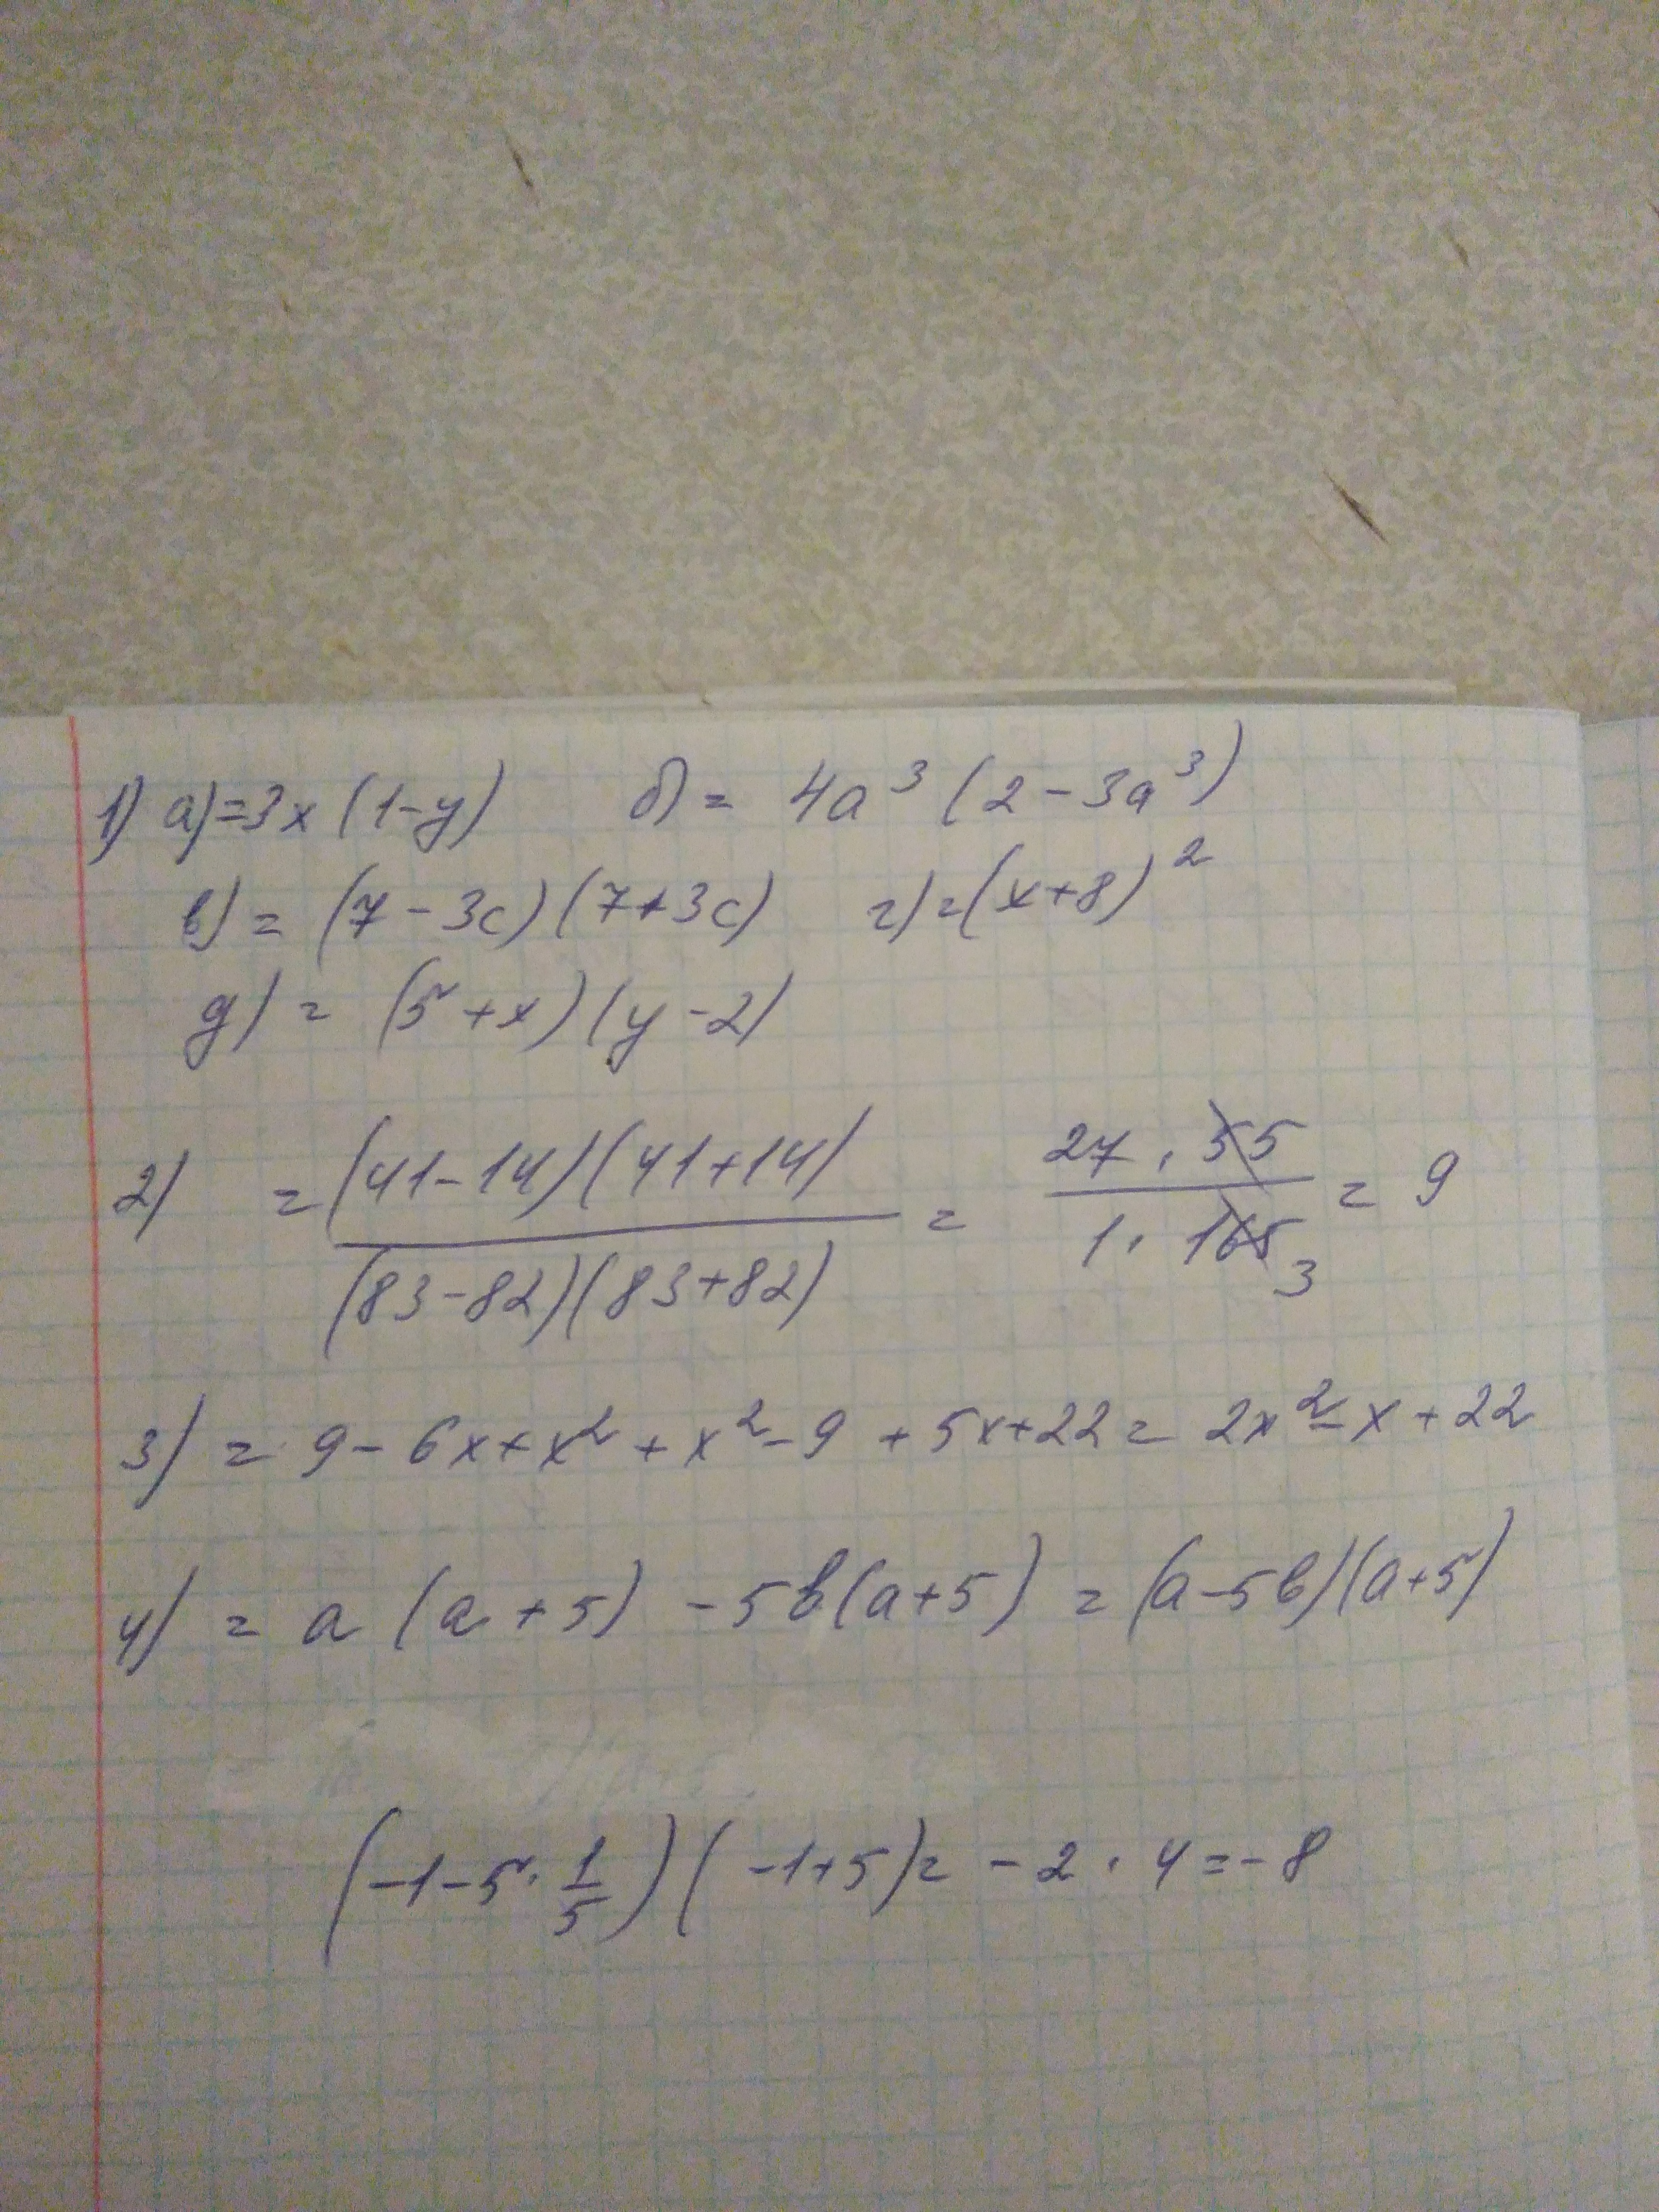 1) а)=3x(1-y) б)= 4a³(2-3a³)
в)= (7-3c)(7+3c) г)=(x+8)²
д)= (5+x)(y-2)
2) = (41-14)(41+14) / (83-82)(83+82) = 27·55 / 1·165 3 = 9
3) = 9-6x+x²+x²-9+5x+22= 2x²-x+22
4) = a(a+5) -5b(a+5) = (a-5b)(a+5)
(-1-5·1/5)(-1+5)= -2·4=-8